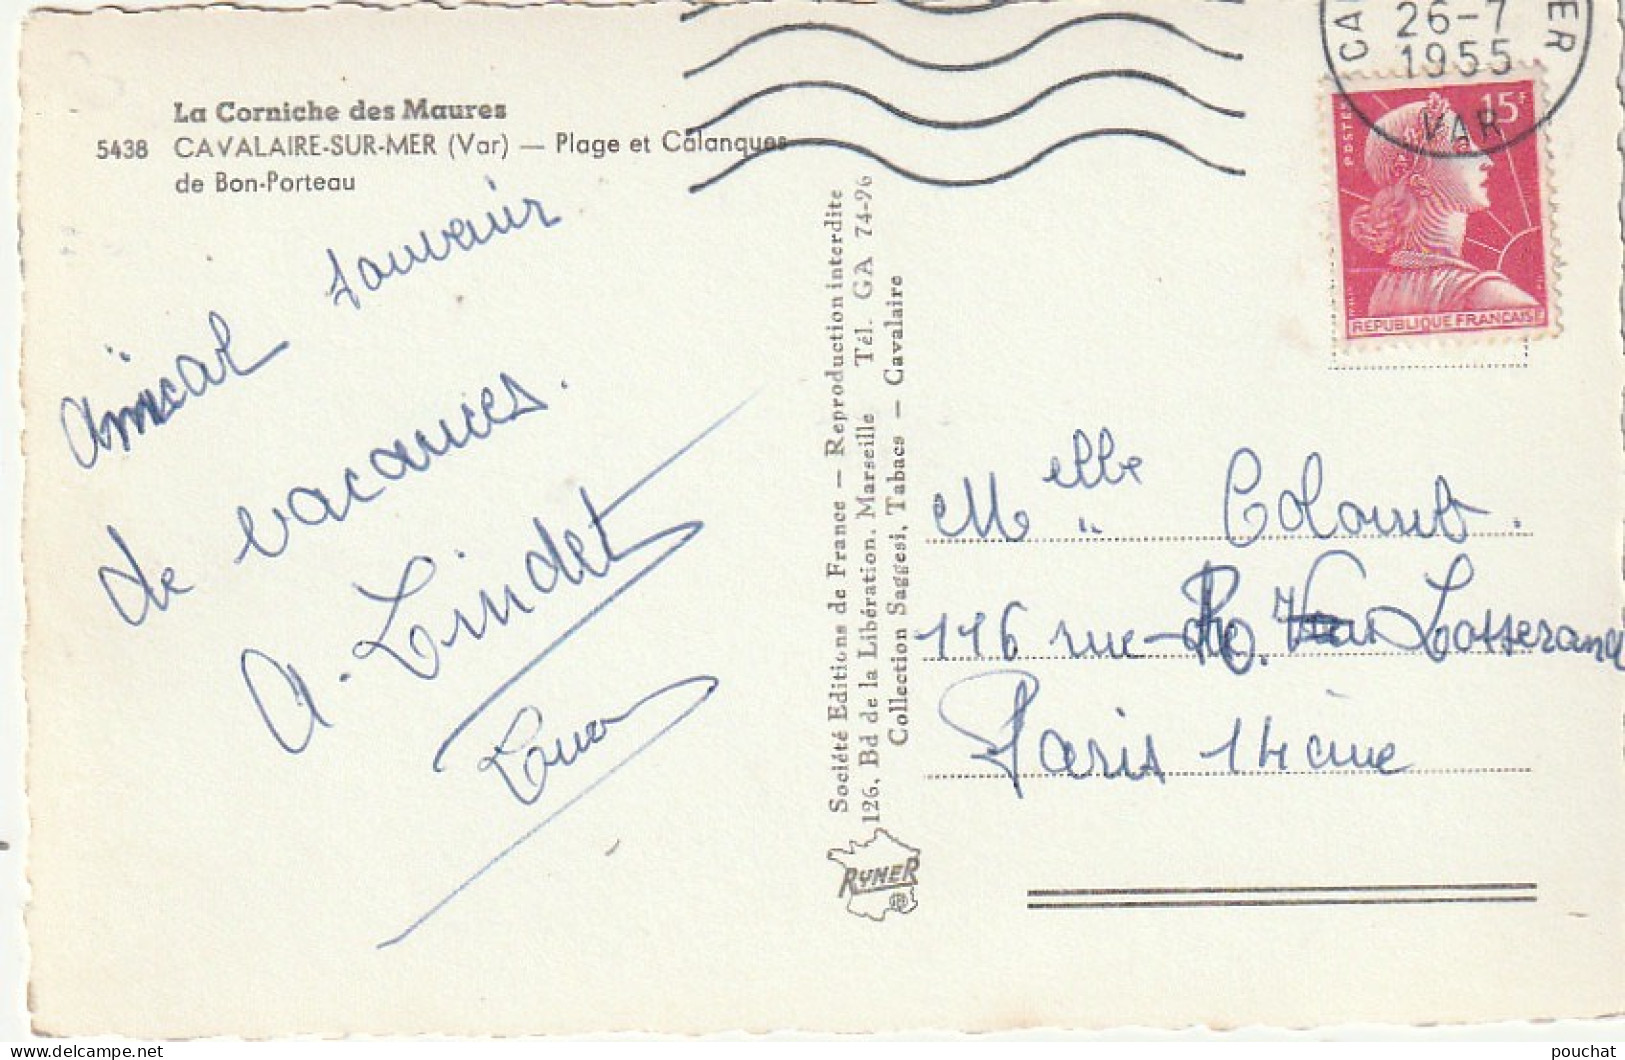 La Corniche des Maures
5438 CAVALAIRE-SUR-MER (Var) — Plage et Calanques
de Bon-Porteau
Amical souvenir
de vacances.
A. Lindet
Société Editions de France — Reproduction interdite
126, Bd de la Libération, Marseille Tél. GA 74-96
Collection Saggesi, Tabacs — Cavalaire
RYNER
26-7
1955
VAR
POSTES
15F
REPUBLIQUE FRANCAISE
Melle Colomb.
116 rue R. Losserand
Paris 14ème
pouchat